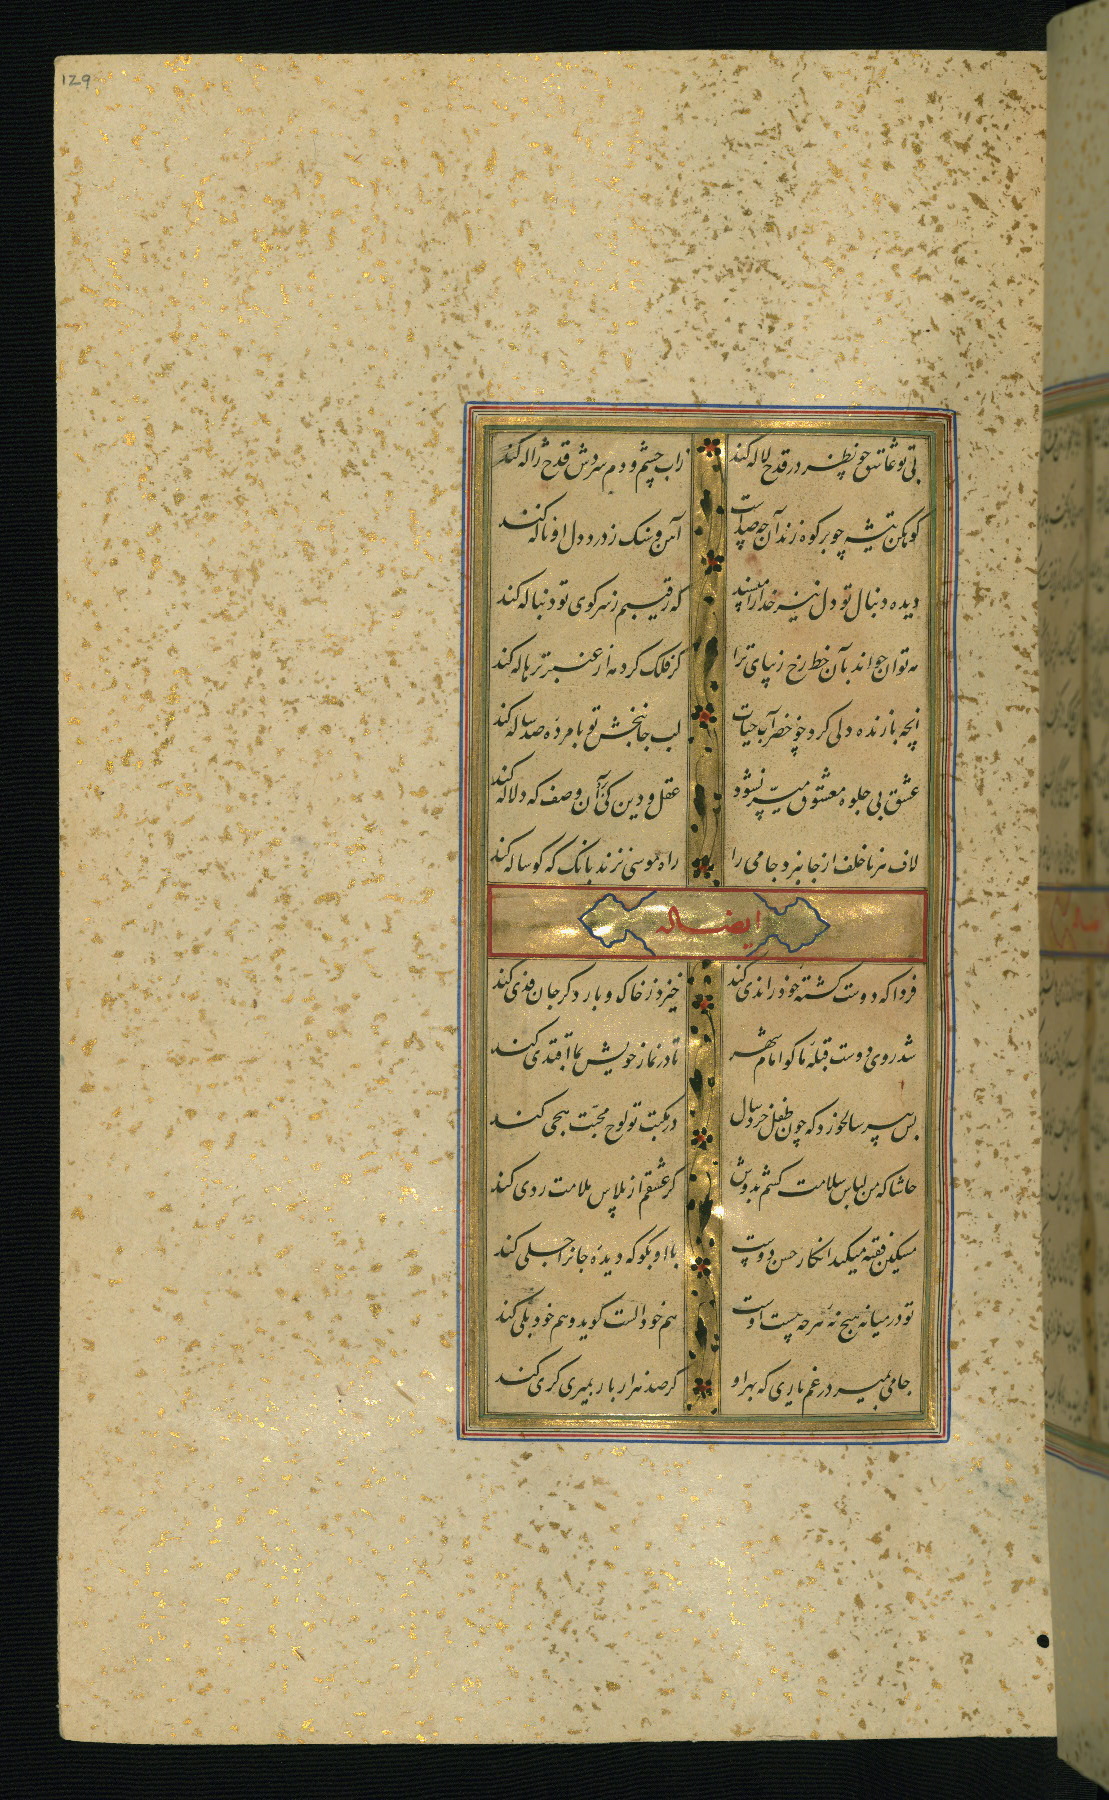 129
بی تو عاشق چو نظر در قدح لاله کند زاب چشم و دم سردش قدح ژاله کند
کوهکن تیشه چو بر کوه زند آن چه صداست آهن و سنک ز درد دل او ناله کند
دیده دنبال تو دل نیز خدا را مپسند که رقیبم ز سر کوی تو دنباله کند
مه توان خواند بآن خط رخ زیبای ترا کز فلک کرد مه از عنبر تر هاله کند
آنچه با زنده دلی کرد چو خضر آب حیات لب جانبخش تو با مرده صد ساله کند
عشق بی جلوه معشوق میسر نشود عقل و دین کی برد آن وصف که دلاله کند
لاف هر ناخلف از جا نبرد جامی را راه موسی نزند بانک که کوساله کند
ایضا له
فردا که دوست کشته خود را ندی کند خیزد ز خاک و بار دکر جان فدی کند
شد روی دوست قبله ما کو امام شهر تا در نماز خویش بما اقتدی کند
بس پیر سالخورد که چون طفل خردسال در مکتب تو لوح محبت هجی کند
حاشا که من لباس سلامت کشم بدوش کر عشقم از پلاس ملامت ردی کند
مسکین فقیه میکند انکار حسن دوست با او بکو که دیده جانرا جلی کند
تو در میانه هیچ نه هر چه هست اوست هم خود الست کوید و هم خود بلی کند
جامی بمیر در غم یاری که بهر او کر صد هزار بار بمیری کری کند